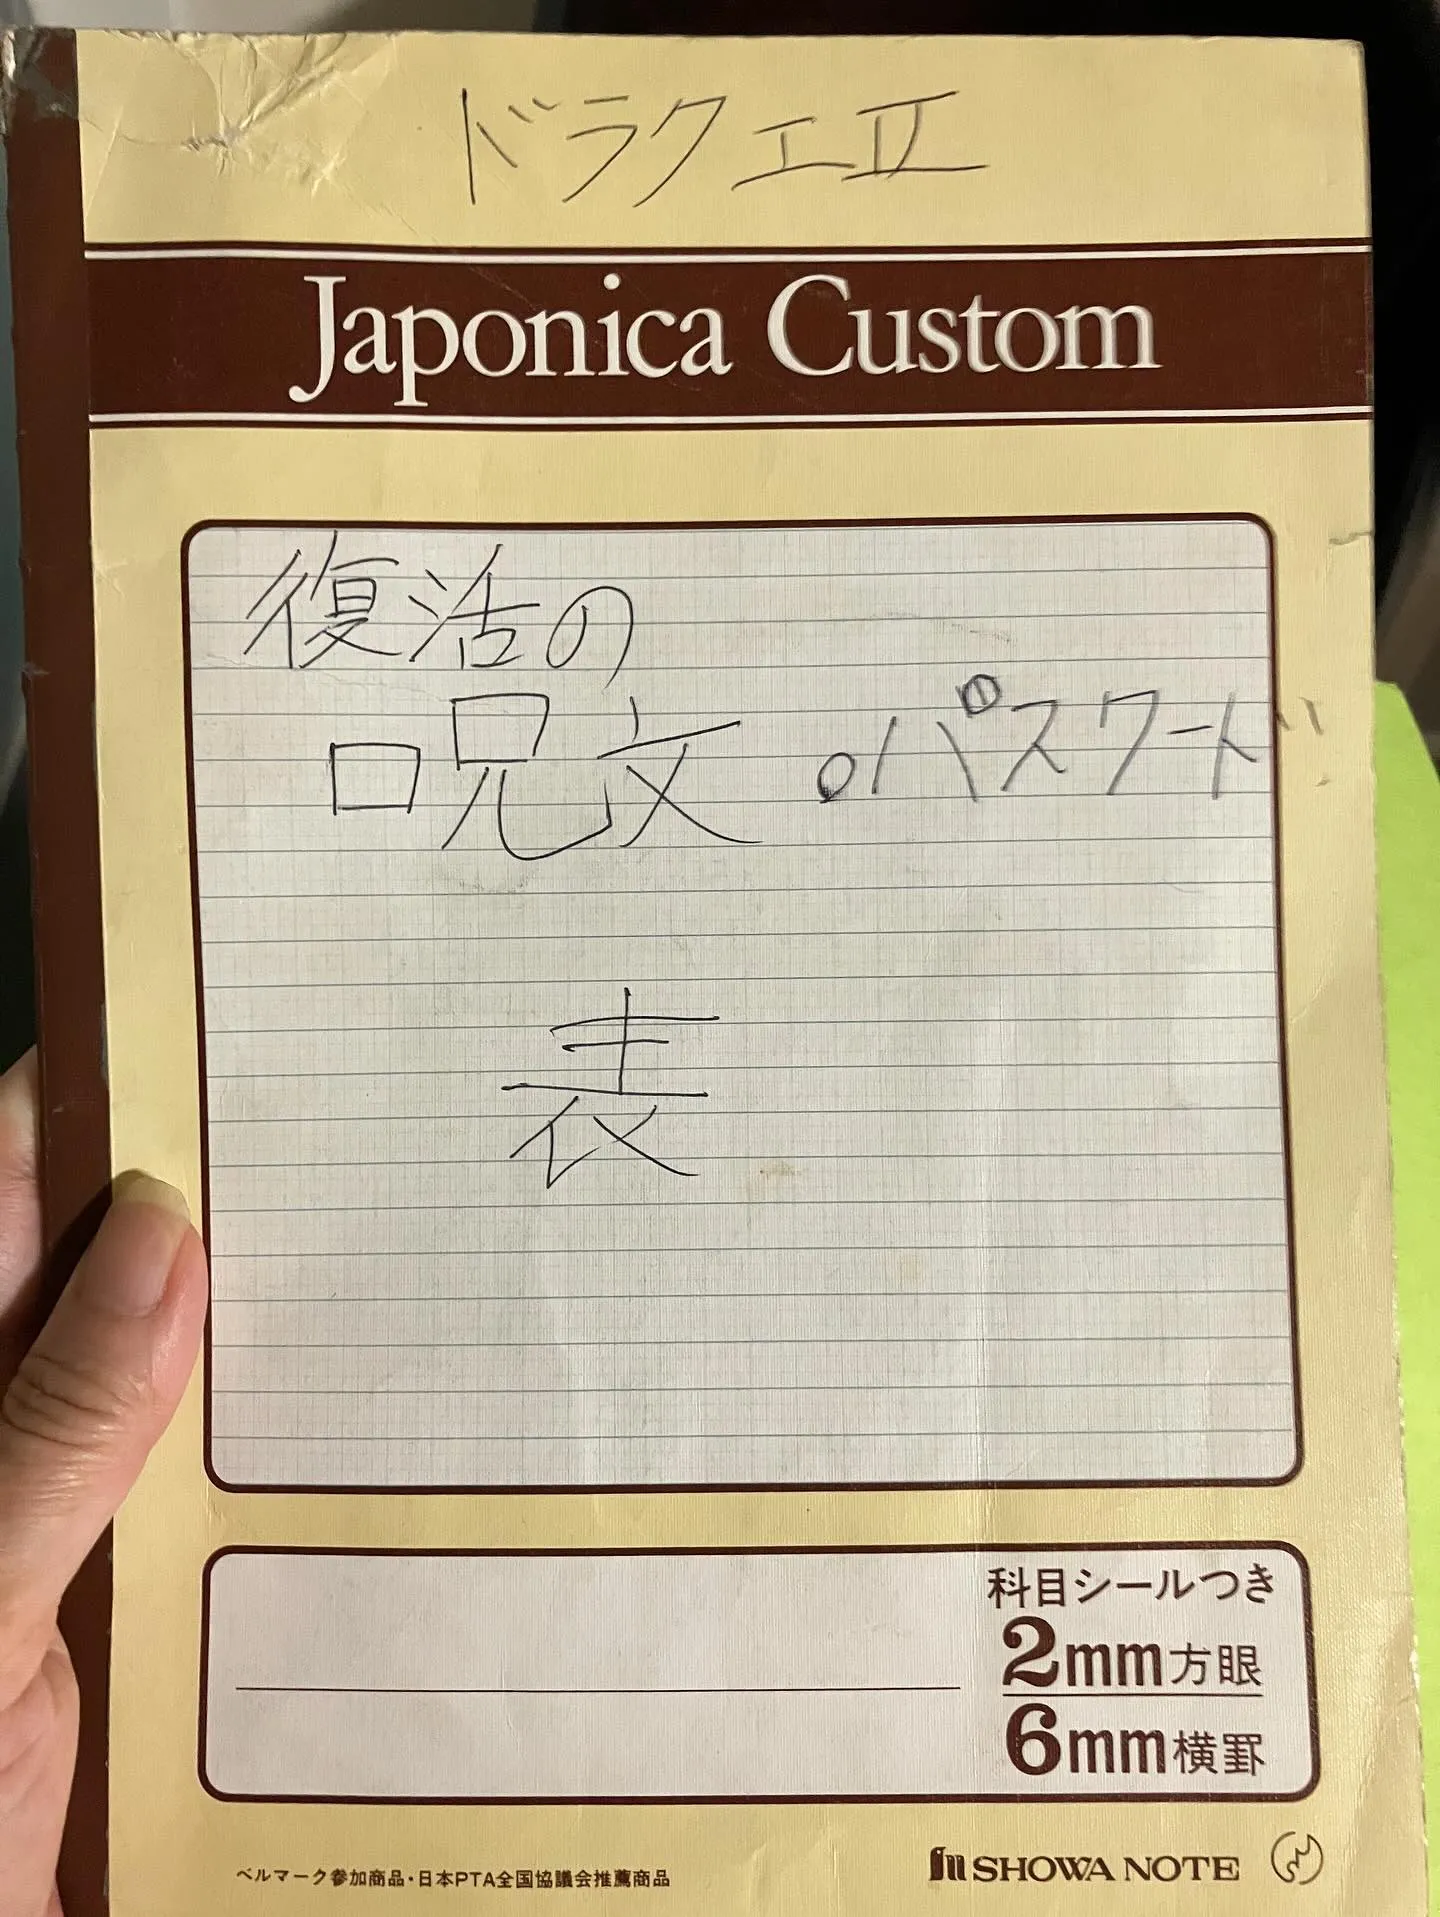 ドラクエII
Japonica Custom
復活の
呪文。パスワード
表
科目シールつき
2mm方眼
6mm横罫
ベルマーク参加商品・日本PTA全国協議会推薦商品
SHOWA NOTE